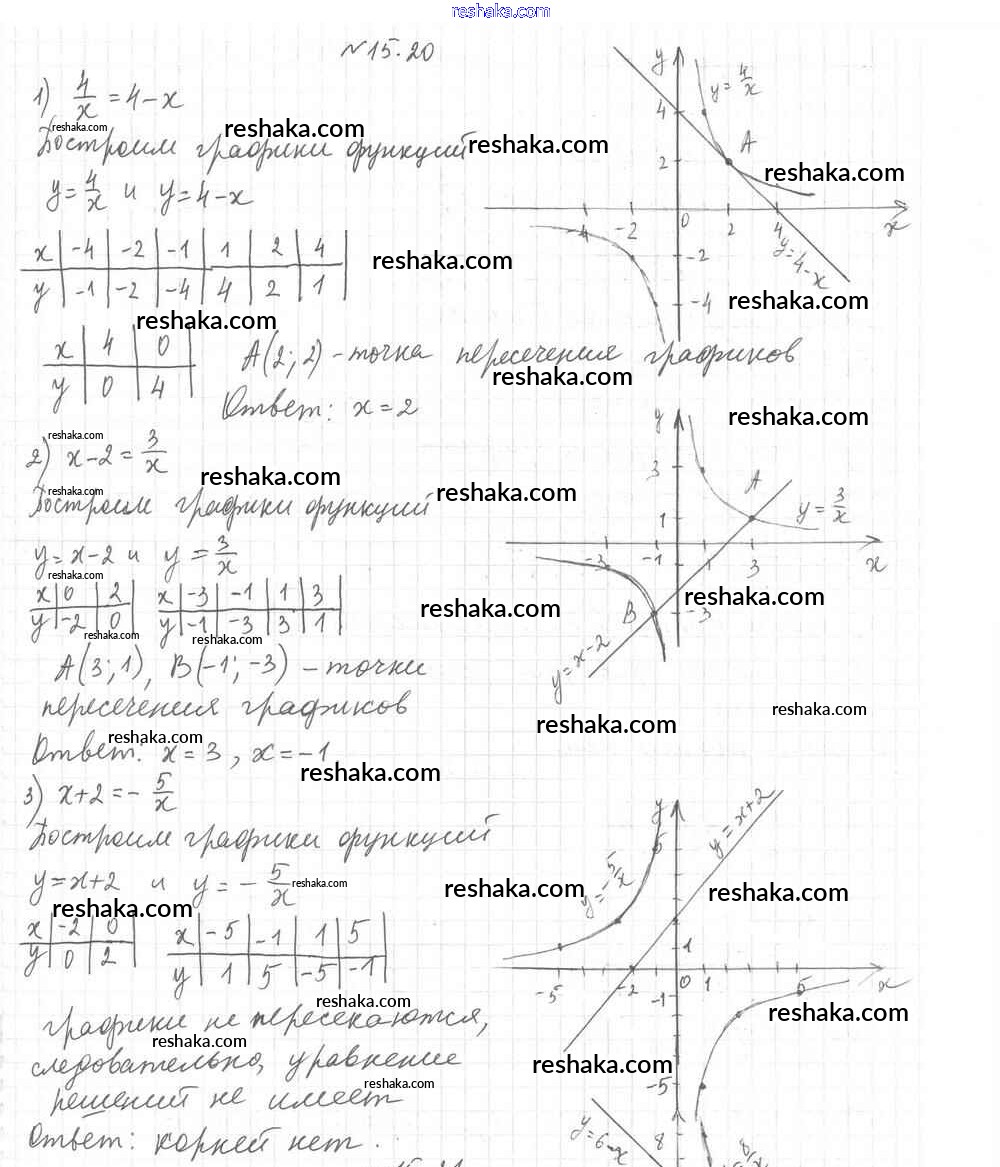 reshaka.com
№15.20
1) 4/x = 4-x
reshaka.com
Построим графики функций
reshaka.com
reshaka.com
y = 4/x и y = 4-x
x | -4 | -2 | -1 | 1 | 2 | 4
y | -1 | -2 | -4 | 4 | 2 | 1
reshaka.com
reshaka.com
x | 4 | 0
y | 0 | 4
A(2; 2) - точка пересечения графиков
reshaka.com
Ответ: x = 2
y
y = 4/x
4
A
2
reshaka.com
-4 -2 0 2 4 x
y = 4-x
-2
-4
reshaka.com
reshaka.com
2) x-2 = 3/x
reshaka.com
reshaka.com
Построим графики функций
reshaka.com
y = x-2 и y = 3/x
reshaka.com
x | 0 | 2
y | -2 | 0
x | -3 | -1 | 1 | 3
y | -1 | -3 | 3 | 1
reshaka.com
reshaka.com
reshaka.com
A(3; 1), B(-1; -3) - точки
пересечения графиков
reshaka.com
Ответ: x = 3, x = -1
reshaka.com
reshaka.com
y
3
A
1
y = 3/x
-3 -1 1 3 x
reshaka.com
B
-3
y = x-2
reshaka.com
reshaka.com
3) x+2 = - 5/x
Построим графики функций
y = x+2 и y = - 5/x
reshaka.com
reshaka.com
reshaka.com
x | -2 | 0
y | 0 | 2
x | -5 | -1 | 1 | 5
y | 1 | 5 | -5 | -1
reshaka.com
графики не пересекаются,
reshaka.com
следовательно, уравнение
reshaka.com
решений не имеет
Ответ: корней нет.
y
5
y = x+2
y = - 5/x
reshaka.com
1
-5 -2 0 1 5 x
-1
reshaka.com
reshaka.com
-5
y = 6-x
8